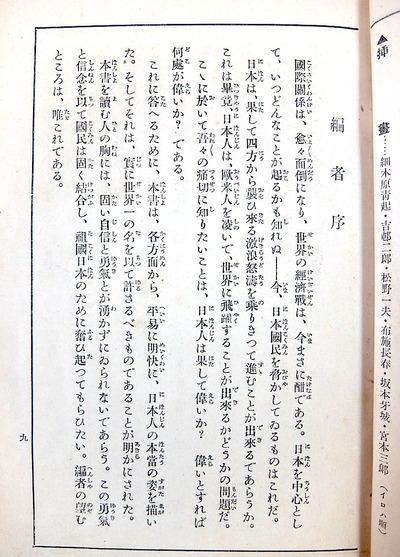 ▲挿　畫……細木原青起・吉邨二郎・松野一夫・布施長春・坂本牙城・宮本三郎（イロハ順）
編者序
國際關係は、愈々面倒になり、世界の經濟戰は、今まさに酣である。日本を中心とし
て、いつどんなことが起るかも知れぬ――今、日本國民を脅かしてゐるものはこれだ。
日本は、果して四方から襲ひ來る激浪怒濤を乘りきつて進むことが出來るであらうか。
これは畢竟日本人は、歐米人を凌いで、世界に飛躍することが出來るかどうかの問題だ。
こゝに於いて吾々の痛切に知りたいことは、日本人は果して偉いか？　偉いとすれば
何處が偉いか？である。
これに答へるために、本書は、各方面から、平易に明快に、日本人の本當の姿を描い
た。そしてそれは、實に世界一の名を以て許さるべきものであることが明かにされた。
本書を讀む人の胸には、固い自信と勇氣とが湧かずにゐられないであらう。この勇氣
と信念を以て國民は固く結合し、祖國日本のために奮ひ起つてもらひたい。編者の望む
ところは、唯これである。
九